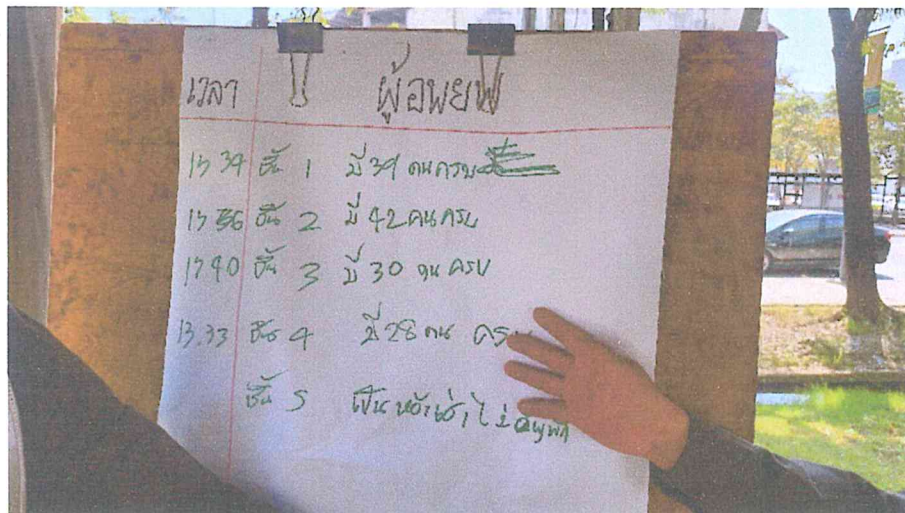 เวลา ผู้อพยพ
13 34 ชั้น 1 มี 34 คนครบ
13 36 ชั้น 2 มี 42 คนครบ
13 40 ชั้น 3 มี 30 คน ครบ
13.33 ชั้น 4 มี 28 คน
ชั้น 5 เป็น